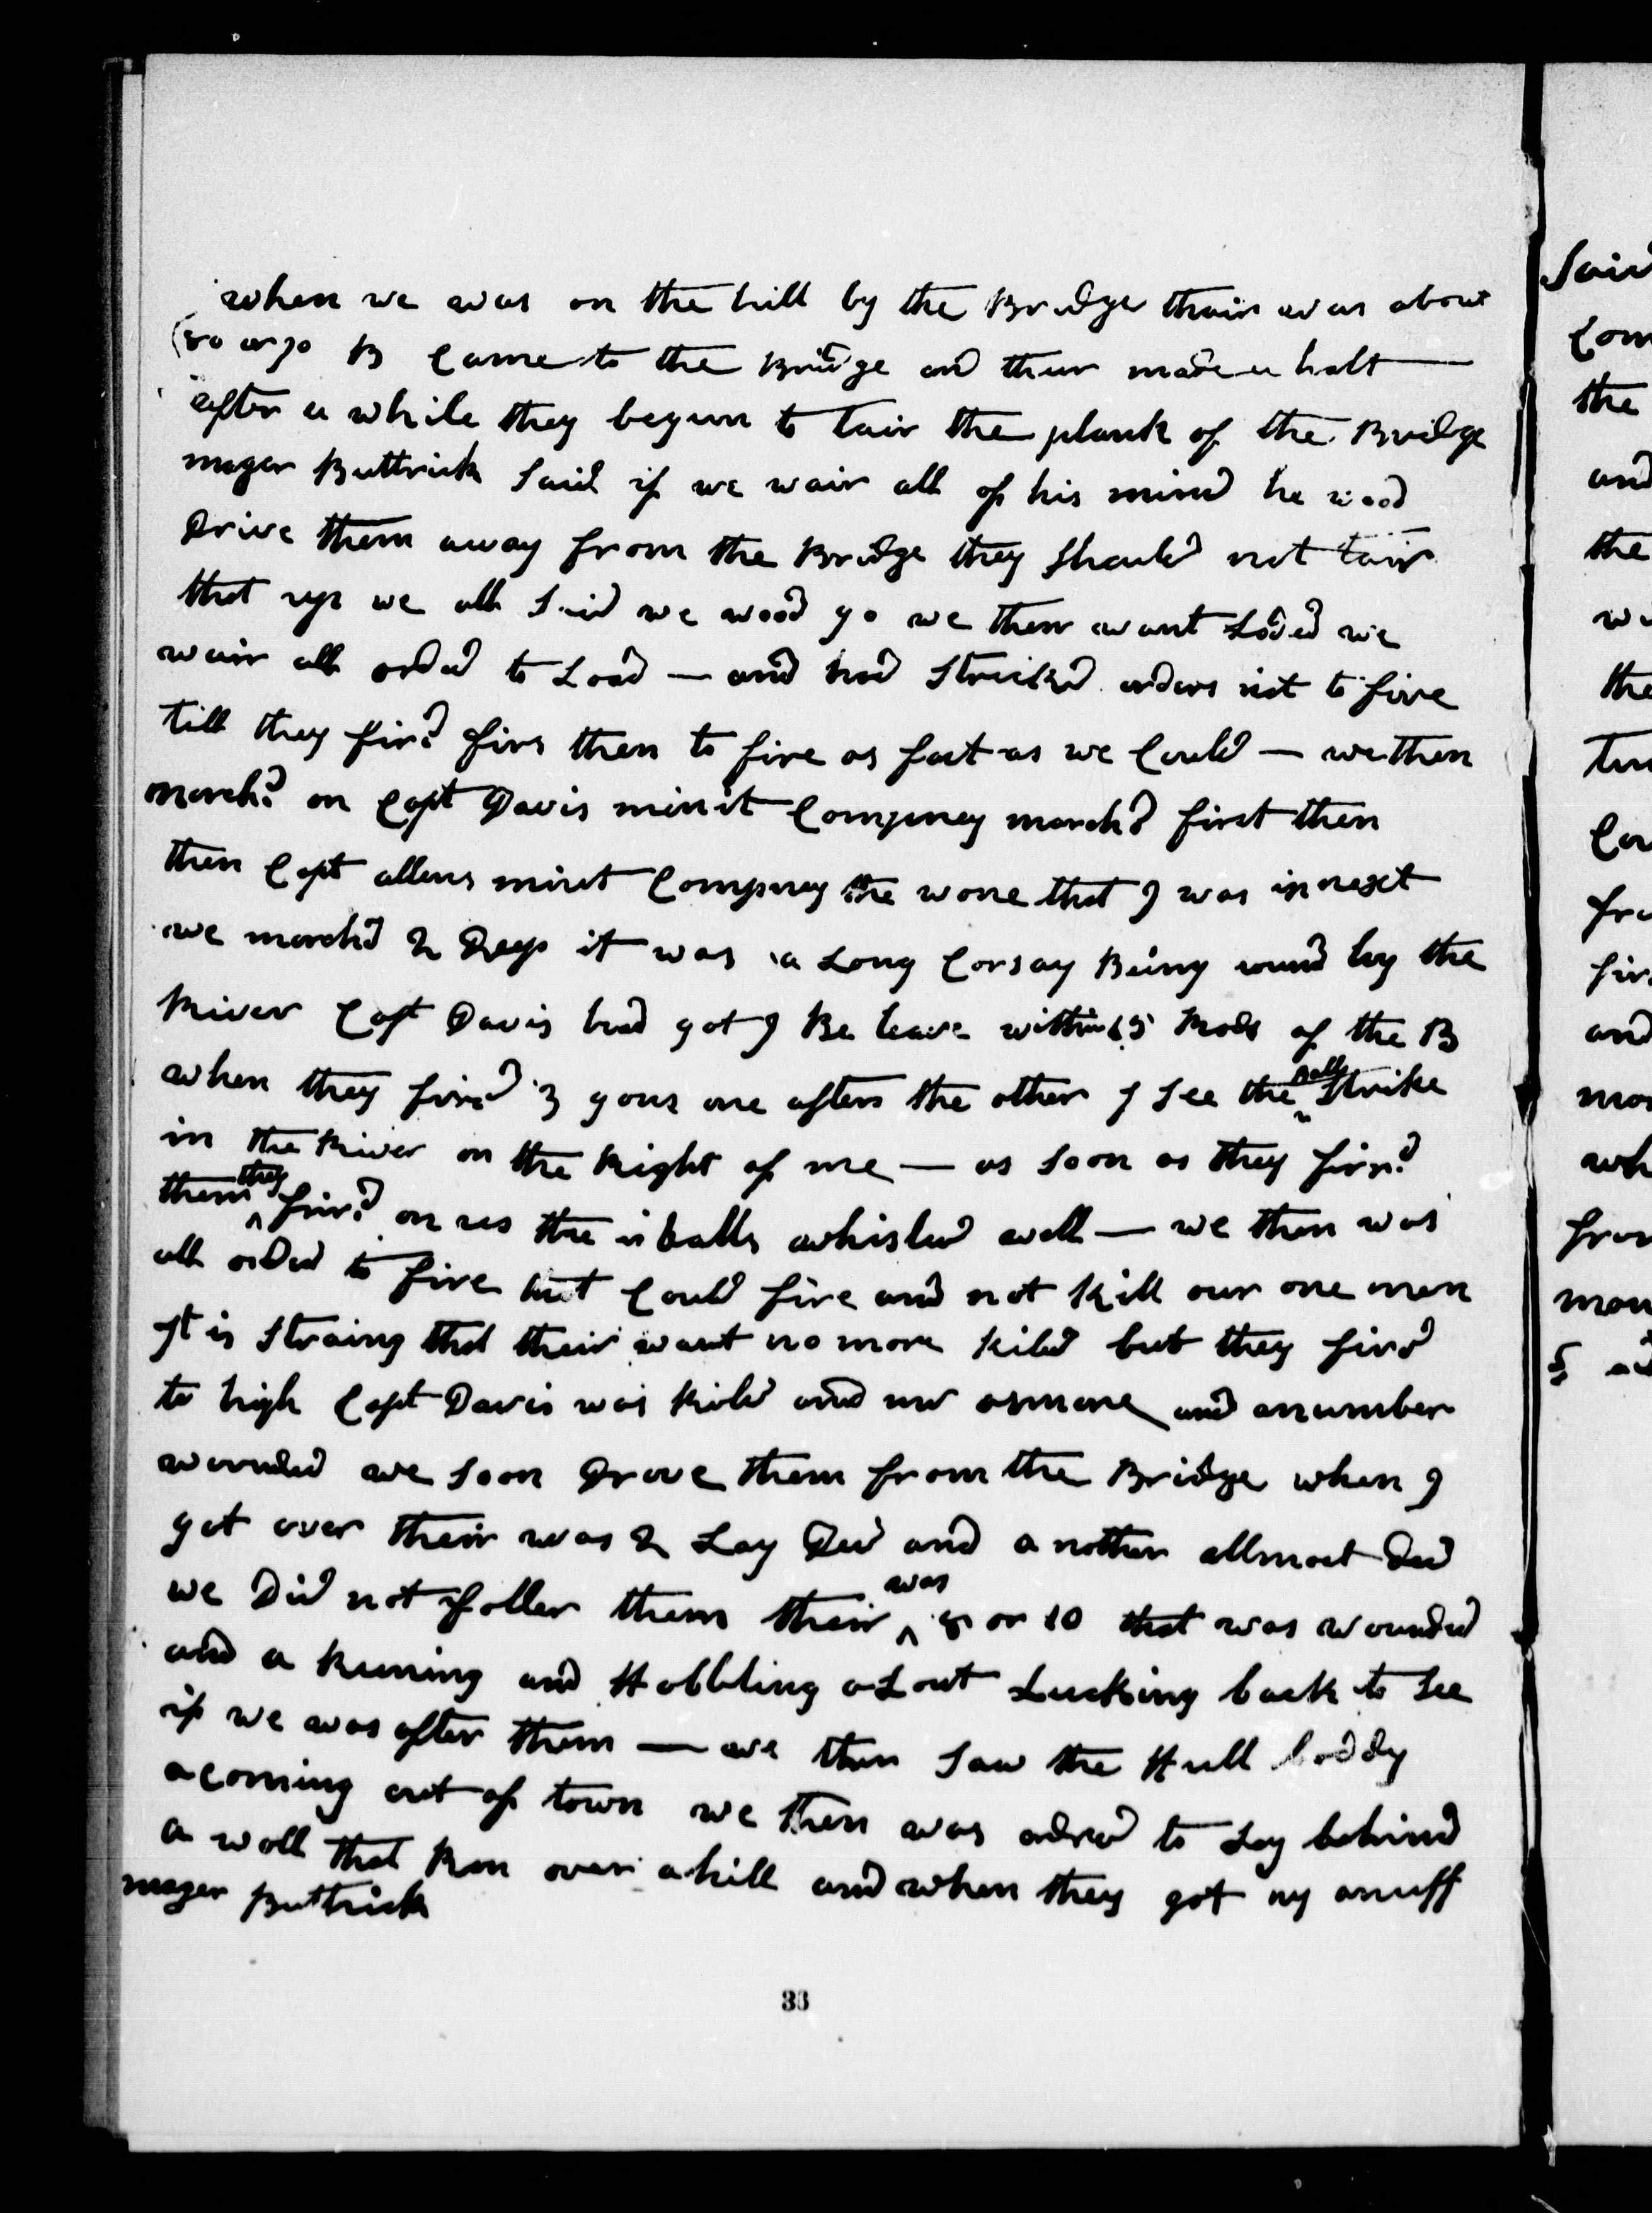 when we was on the hill by the Bridge thair was about
80 or 90 B Came to the Bridge and thear made a halt —
after a while they begun to tair the plank of the Bridge
mager Buttrick Said if we wair all of his mind he wood
Drive them away from the Bridge they Should not tair
that up we all Said we wood go we then want Loded we
wair all orded to Load — and had Stricked orders not to fire
till they fird firs then to fire as fast as we Could — we then
march.d on Capt Davis minit Compney march.d first then
then Capt allens minit Compney the wone that I was in next
we march.d 2 Deep it was a Long Corsay Being round by the
River Capt Davis had got I Be leave within 15 Rods of the B
when they fir.d 3 gons one after the other I see the balls strike
in the River on the Right of me — as soon as they fir.d
them they fir.d on us their balls whisled well — we then was
all orded to fire that Could fire and not Kill our one men
It is Straing that their want no more Kild but they fird
to high Capt Davis was Kild and mr osmore and a number
wounded we soon Drove them from the Bridge when I
got over their was 2 Lay Ded and a nother allmost Ded
we Did not foller them their was 8 or 10 that was wounded
and a Running and Hobbling a Bout Lucking back to see
if we was after them — we then Saw the Hull boddy
a coming out of town we then was orded to Lay behind
a wall that Run over a hill and when they got ny anuff
mager Buttrick
33
Said
Com
the
and
the
the
and
wh
from